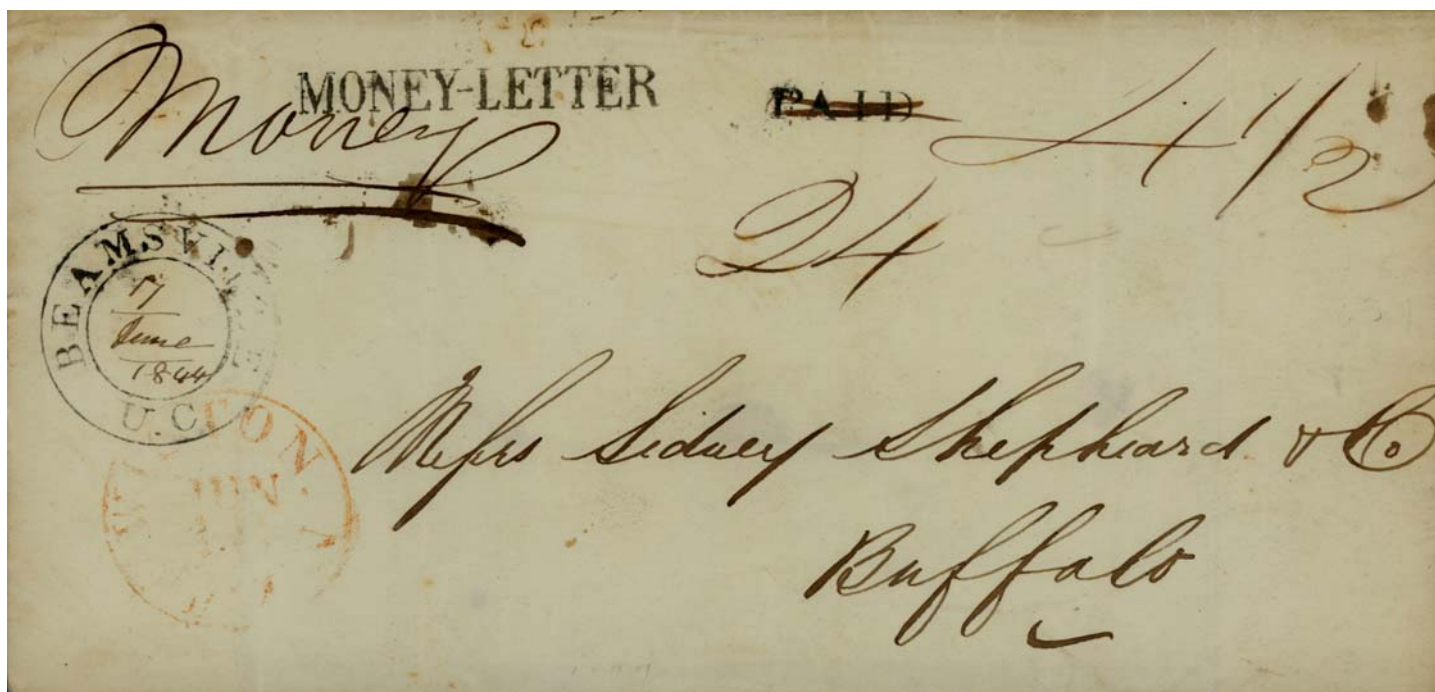 MONEY-LETTER
PAID
Money
4 1/2
24
BEAMSVILLE
17
June
1844
U.C.
JUN
Messrs Sidney Shepheard & Co
Buffalo